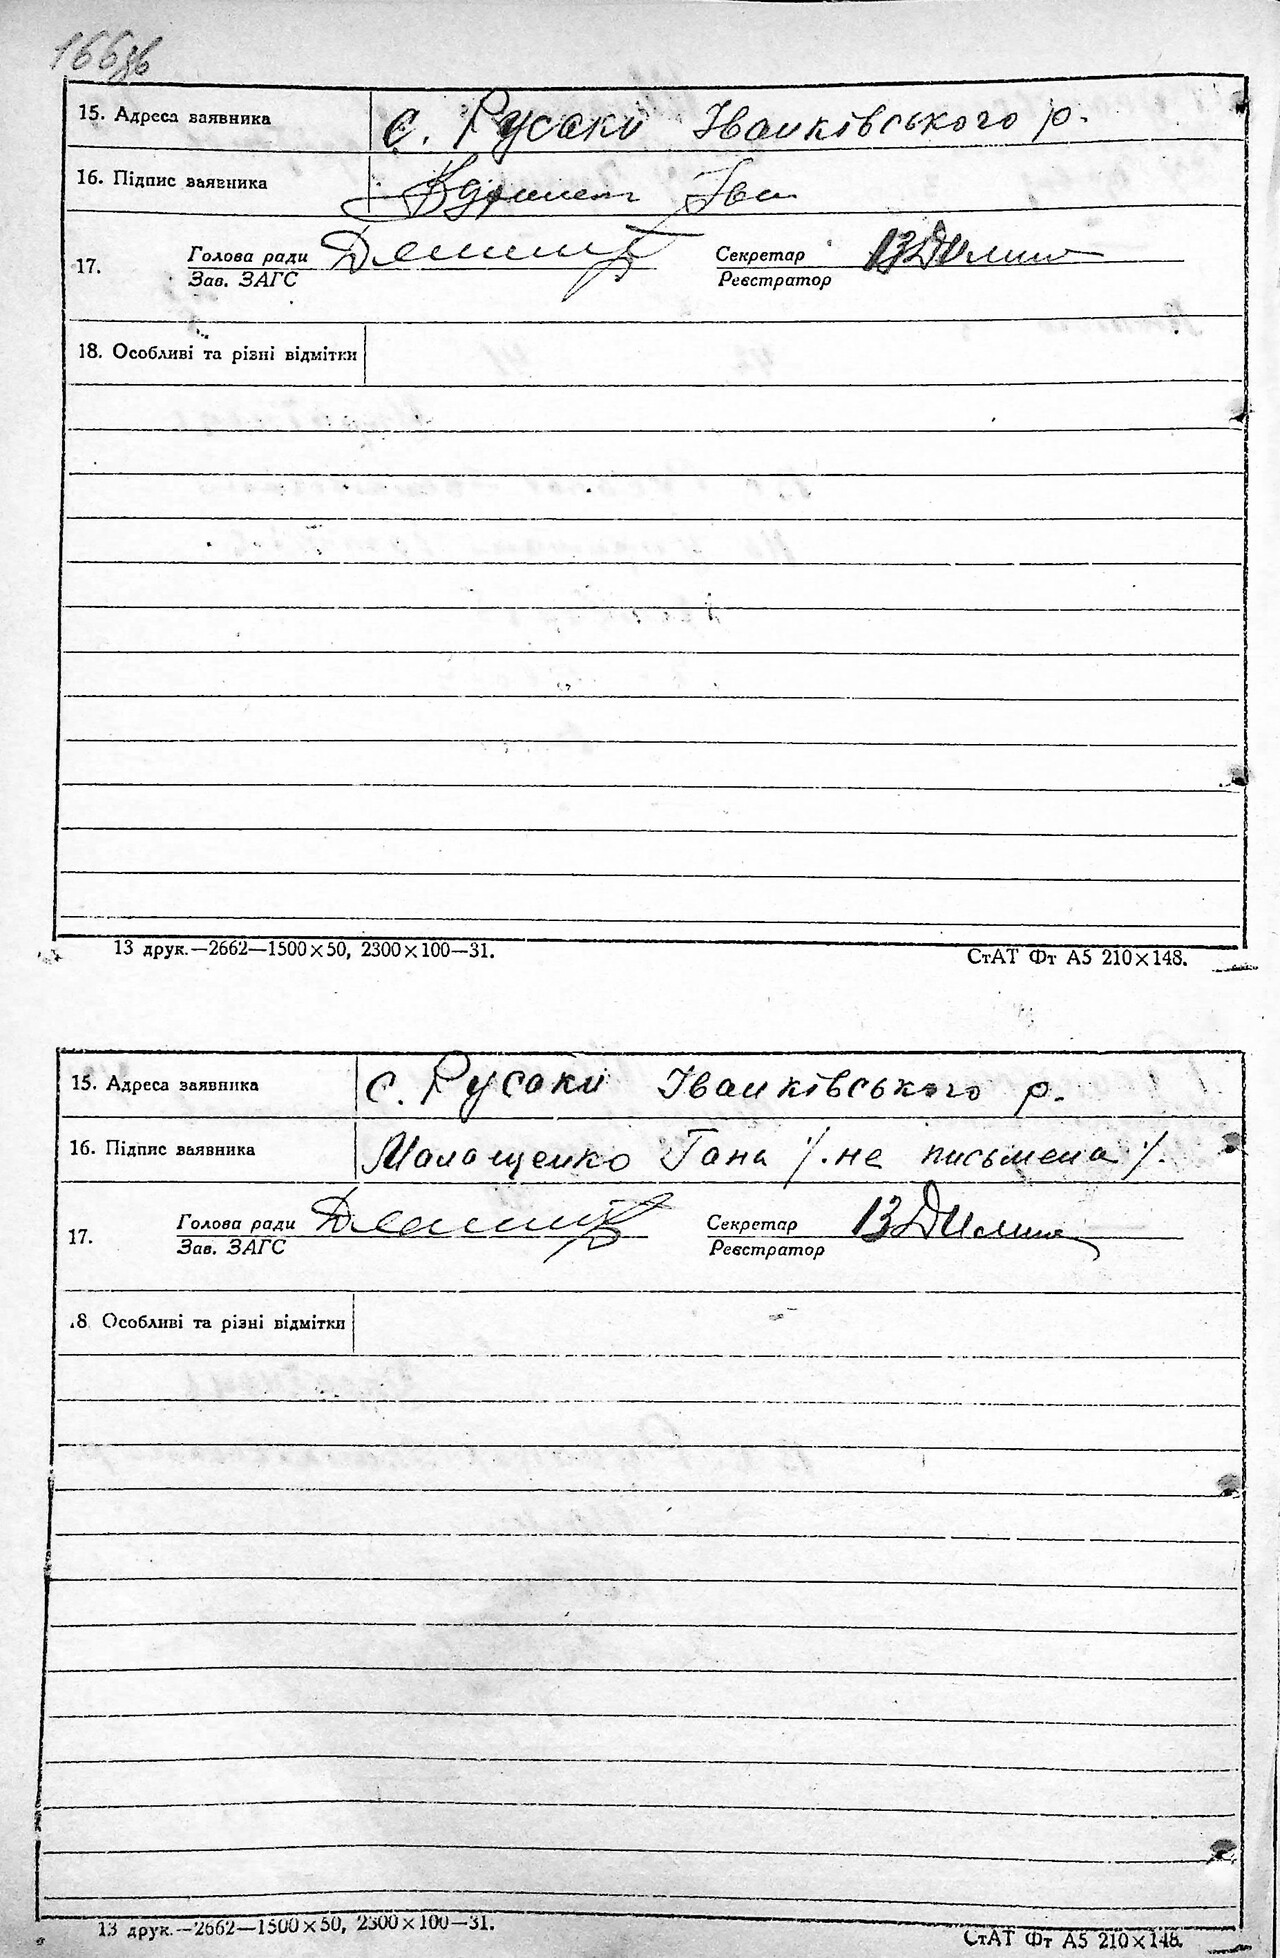 166зв
15. Адреса заявника с. Русаки Іванківського р.
16. Підпис заявника Іван
17. Голова ради Секретар
Зав. ЗАГС Реєстратор
18. Особливі та різні відмітки
13 друк.—2662—1500×50, 2300×100—31. СтАТ Фт А5 210×148.
15. Адреса заявника с. Русаки Іванківського р.
16. Підпис заявника Малащенко Гана /. не письмена /.
17. Голова ради Секретар
Зав. ЗАГС Реєстратор
.8 Особливі та різні відмітки
13 друк.—2662—1500×50, 2300×100—31. СтАТ Фт А5 210×148.